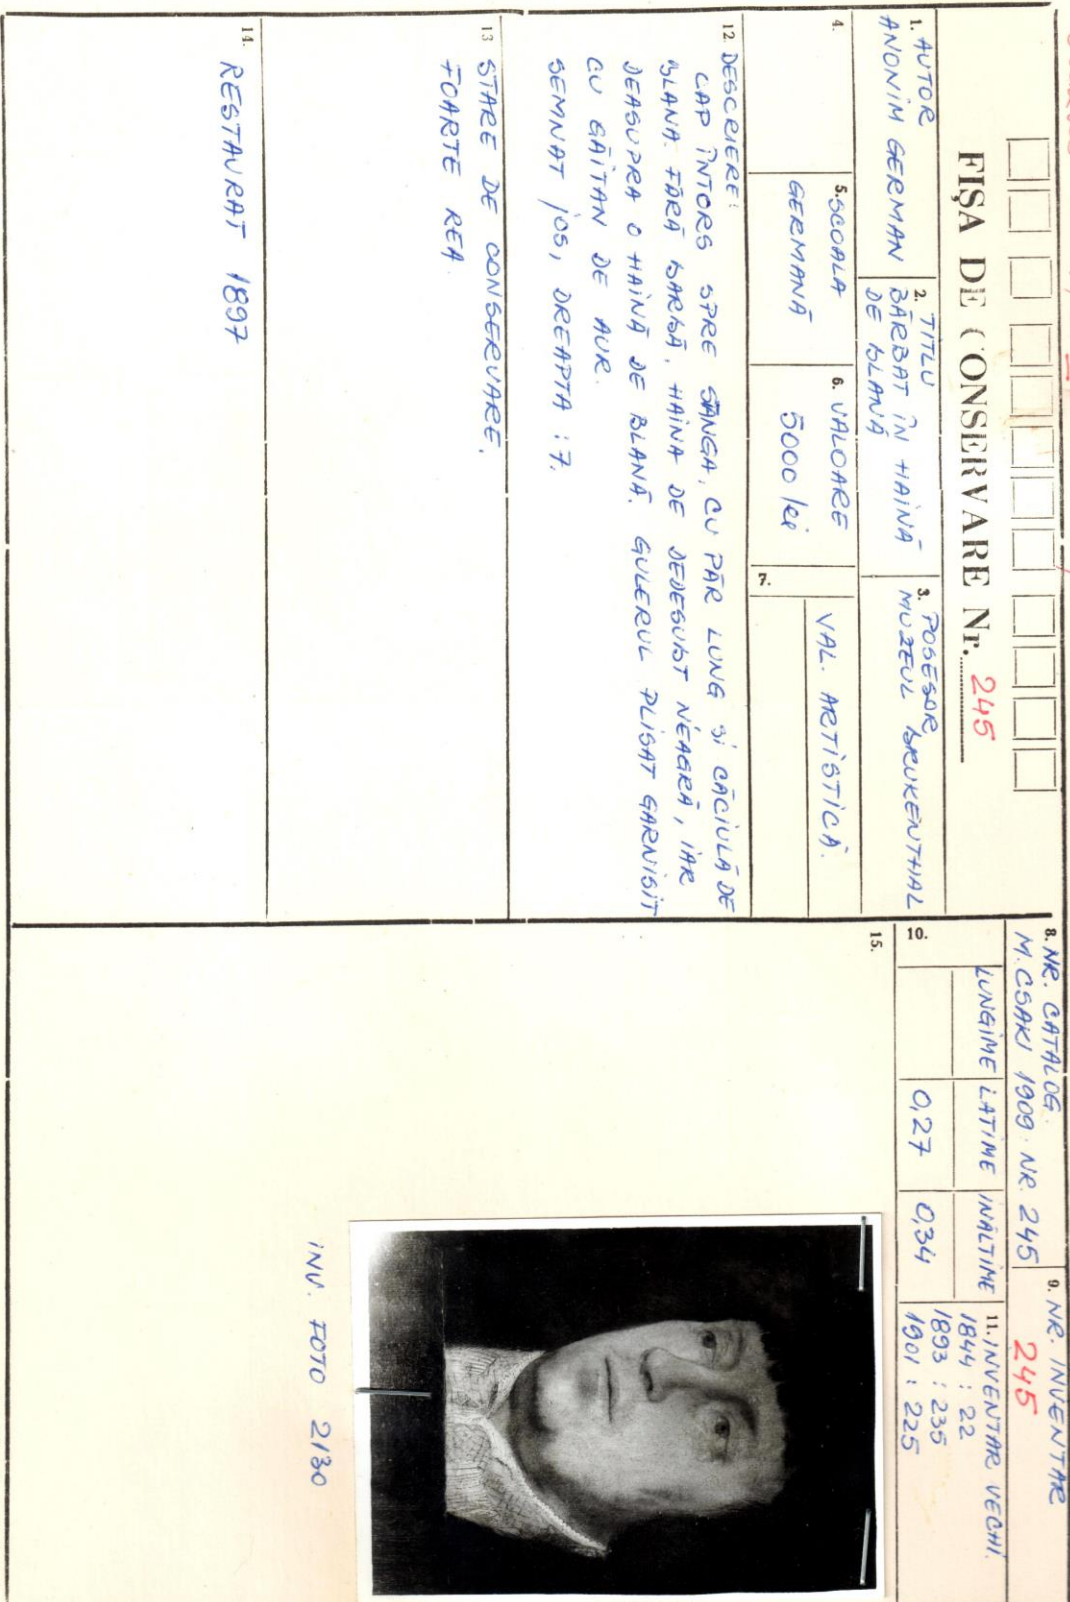 FIȘA DE CONSERVARE Nr. 245
1. AUTOR
ANONIM GERMAN
2. TITLU
BĂRBAT ÎN HAINĂ
DE BLANĂ
3. POSESOR
MUZEUL BRUKENTHAL
4.
5. ȘCOALA
GERMANĂ
6. VALOARE
5000 lei
7.
VAL. ARTISTICĂ.
8. NR. CATALOG.
M. CSAKI 1909. NR. 245
9. NR. INVENTAR
245
10.
LUNGIME LATIME INALTIME
0,27 0,34
11. INVENTAR VECHI.
1844 : 22
1893 : 235
1901 : 225
12. DESCRIERE:
CAP ÎNTORS SPRE STÂNGA, CU PĂR LUNG ȘI CĂCIULĂ DE
BLANĂ. FĂRĂ BARBĂ, HAINA DE DEDESUBT NEAGRĂ, IAR
DEASUPRA O HAINĂ DE BLANĂ. GULERUL PLISAT GARNISIT
CU GĂITAN DE AUR.
SEMNAT JOS, DREAPTA : 7.
13 STARE DE CONSERVARE.
FOARTE REA.
14.
RESTAURAT 1897
15.
INV. FOTO 2130